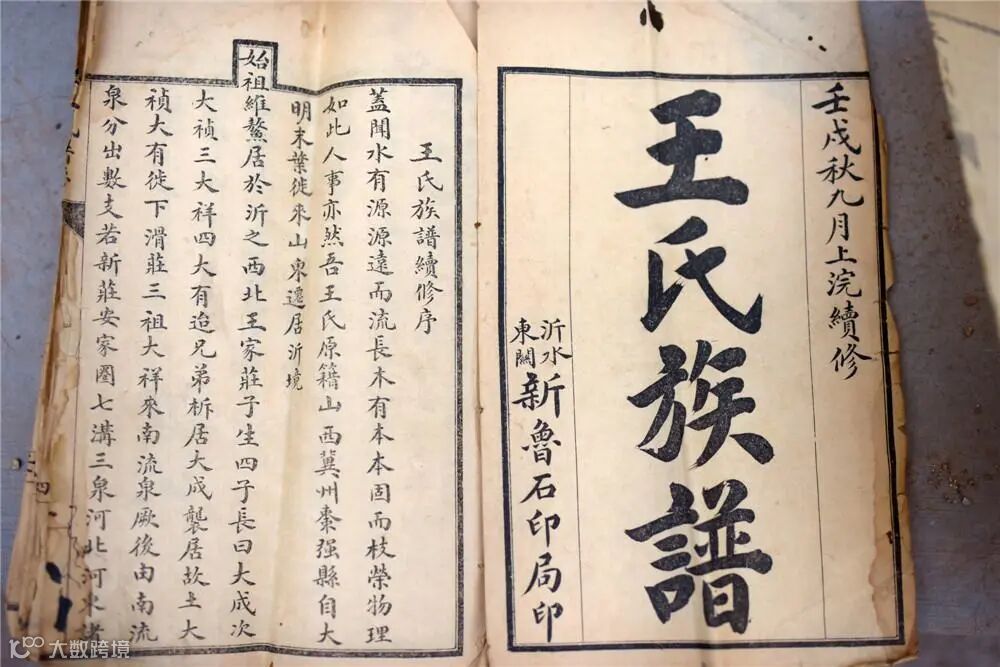 壬戌秋九月上浣續修
王氏族譜
沂水
東關
新魯石印局印
王氏族譜續修序
蓋聞水有源源遠而流長木有本本固而枝榮物理
如此人事亦然吾王氏原籍山西冀州棗强縣自大
明末葉徙來山東遷居沂境
始祖維鰲居於沂之西北王家莊子生四子長曰大成次
大禎三大祥四大有迨兄弟析居大成襲居故土大
禎大有徙下滑莊三祖大祥來南流泉厥後由南流
泉分出數支若新莊安家圈七溝三泉河北河東
大数跨境